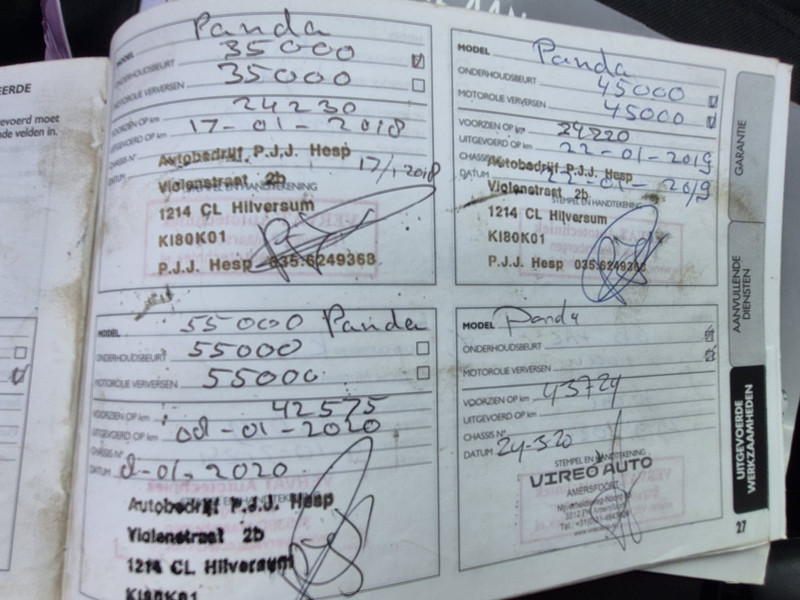 EERDE
gevoerd moet
nde velden in.
Panda
MODEL
35000
ONDERHOUDSBEURT
35000
MOTOROLIE VERVERSEN
24230
VOORZIEN OP km
17-01-2018
UITGEVOERD OP km
CHASSIS N°
17/1 2018
DATUM
Autobedrijf P.J.J. Hesp
Violenstraat 2b
1214 CL Hilversum
KI80K01
P.J.J. Hesp 035.6249368
MODEL Panda
ONDERHOUDSBEURT 45000
MOTOROLIE VERVERSEN 45000
VOORZIEN OP km
UITGEVOERD OP km 22-01-2019
CHASSIS
DATUM 22-01-2019
Autobedrijf P.J.J. Hesp
Violenstraat 2b
STEMPEL EN HANDTEKENING
1214 CL Hilversum
KI80K01
P.J.J. Hesp 035.6249368
MODEL 55000 Panda
ONDERHOUDSBEURT 55000
MOTOROLIE VERVERSEN 55000
VOORZIEN OP km 42575
UITGEVOERD OP km 08-01-2020
CHASSIS N°
DATUM 8-01-2020
Autobedrijf P.J.J. Hesp
Violenstraat 2b
1214 CL Hilversum
KI80K01
MODEL Panda
ONDERHOUDSBEURT
MOTOROLIE VERVERSEN
VOORZIEN OP km 43724
UITGEVOERD OP km
CHASSIS N°
DATUM 24-3-20
STEMPEL EN HANDTEKENING
VIREO AUTO
AMERSFOORT
GARANTIE
AANVULLENDE
DIENSTEN
UITGEVOERDE
WERKZAAMHEDEN
27